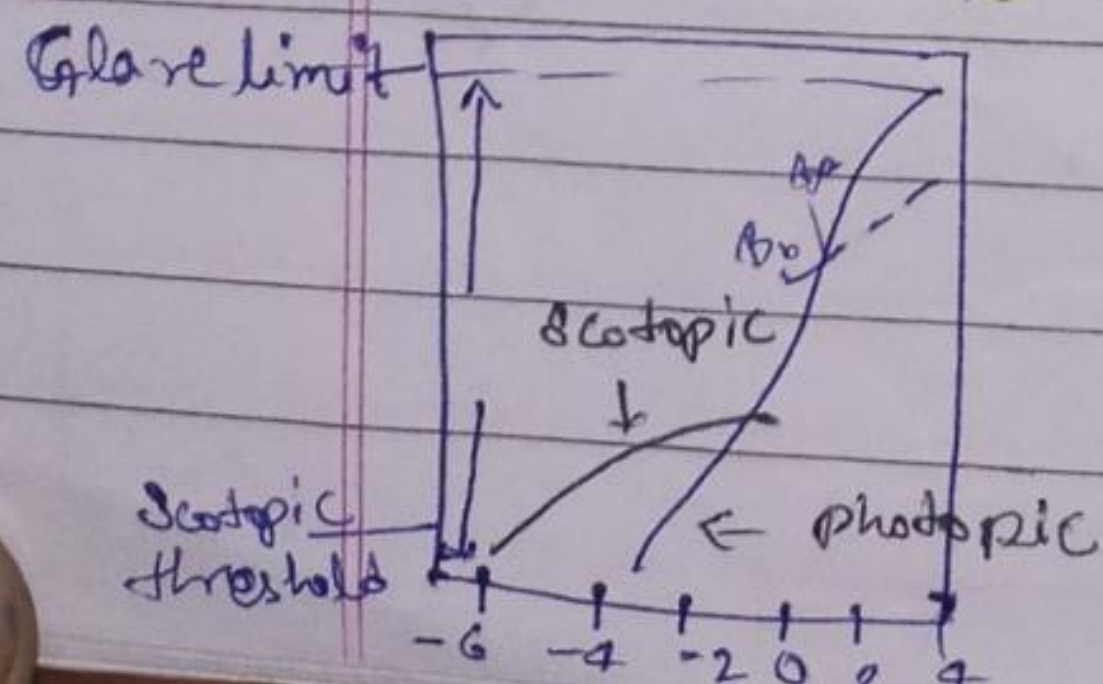 Glare limit
Scotopic
Scotopic
threshold
← photopic
-6 -4 -2 0 2 4